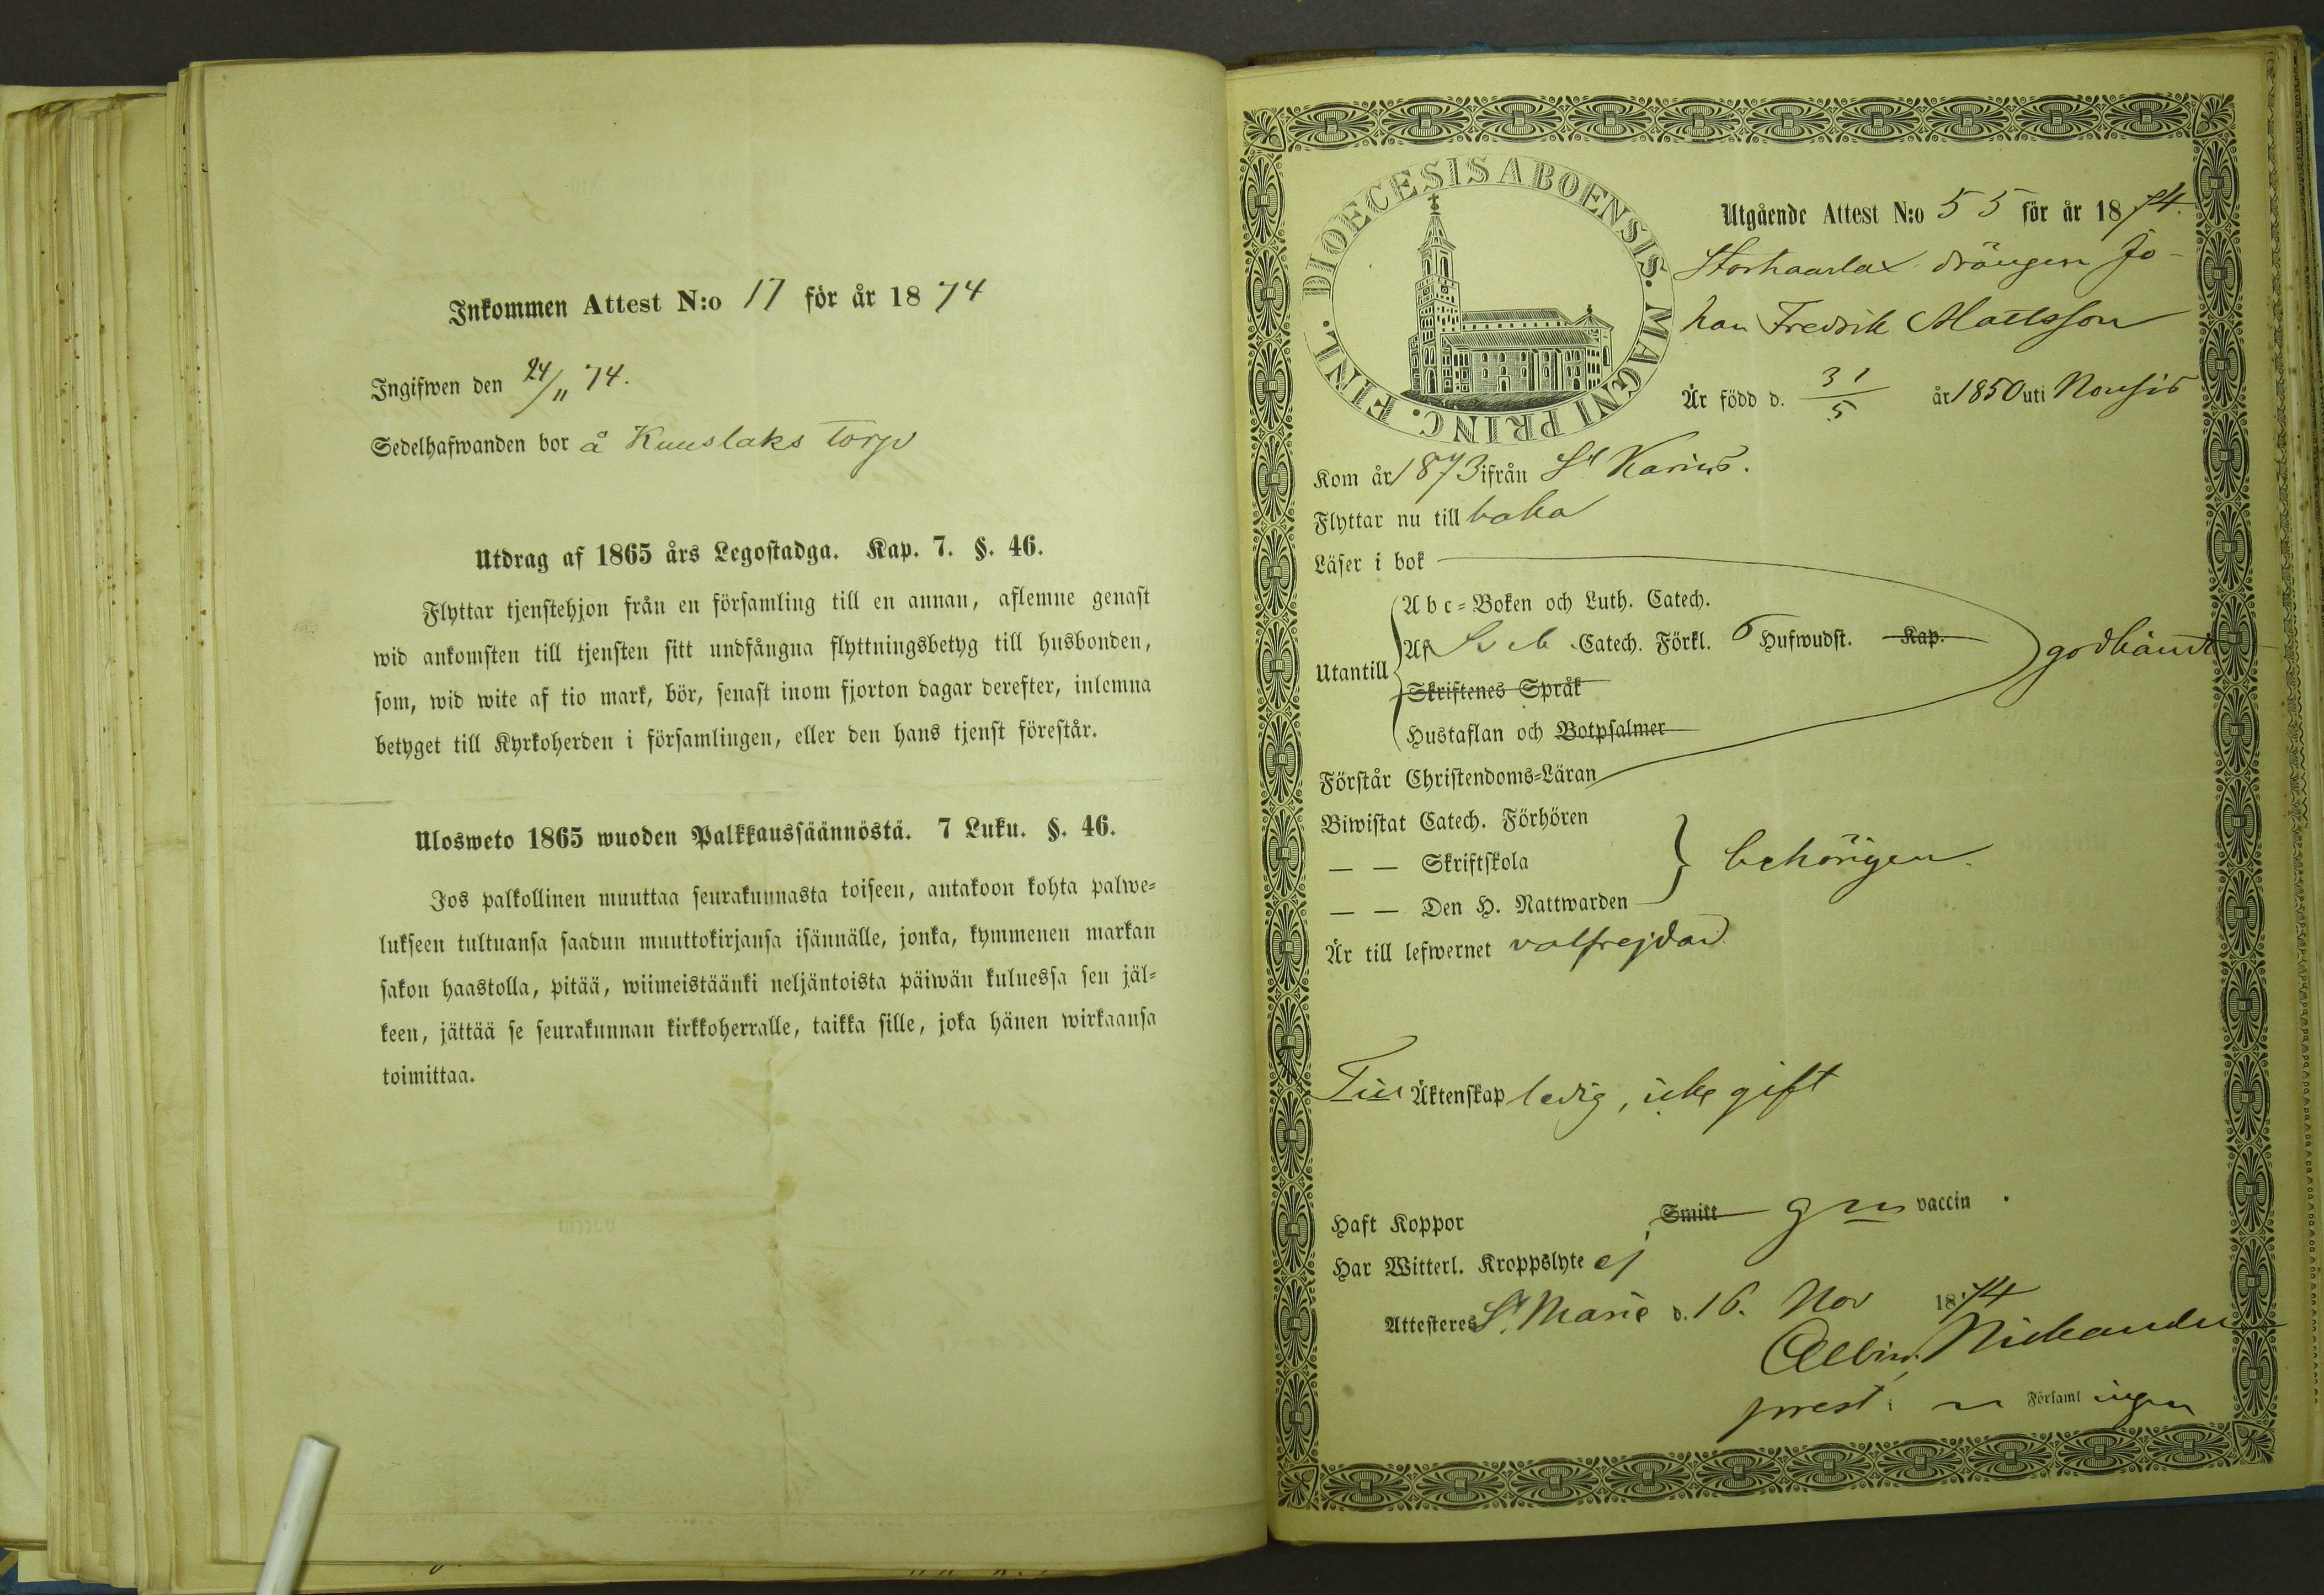 Inkommen Attest N:o 17 för år 1874
Ingifwen den 24/11 74.
Sedelhafwanden bor å Kuuslaks torp
Utdrag af 1865 års Legostadga. Kap. 7. §. 46.
Flyttar tjenstehjon från en församling till en annan, aflemne genast
wid ankomsten till tjensten sitt undfångna flyttningsbetyg till husbonden,
som, wid wite af tio mark, bör, senast inom fjorton dagar derefter, inlemna
betyget till Kyrkoherden i församlingen, eller den hans tjenst förestår.
Ulosweto 1865 wuoden Palkkaussäännöstä. 7 Luku. §. 46.
Jos palkollinen muuttaa seurakunnasta toiseen, antakoon kohta palwe-
lukseen tultuansa saadun muuttokirjansa isännälle, jonka, kymmenen markan
sakon haastolla, pitää, wiimeistäänki neljäntoista päiwän kuluessa sen jäl-
keen, jättää se seurakunnan kirkkoherralle, taikka sille, joka hänen wirkaansa
toimittaa.
DIOECESIS ABOENSIS. MAGNI PRINC. FINL.
Utgående Attest N:o 55 för år 1874.
drängen Jo-
han Fredrik Mattsson
Är född d. 31/5 år 1850 uti Nousis
Kom år 1873 ifrån St Karins.
Flyttar nu till baka
Läser i bok
Abc-Boken och Luth. Catech.
Utantill Af Catech. Förkl. 6 Hufwudst. Kap. godkändt
Skriftenes Språk
Hustaflan och Botpsalmer
Förstår Christendoms-Läran
Biwistat Catech. Förhören
— — Skriftskola behörigen.
— — Den H. Nattwarden
Är till lefwernet välfrejdad.
Till Äktenskap ledig, icke gift
Haft Koppor Smitt vaccin.
Har Witterl. Kroppslyte ej
Attesteres St. Marie d. 16. Nov 1874
Albin Nikander
prest i Församlingen